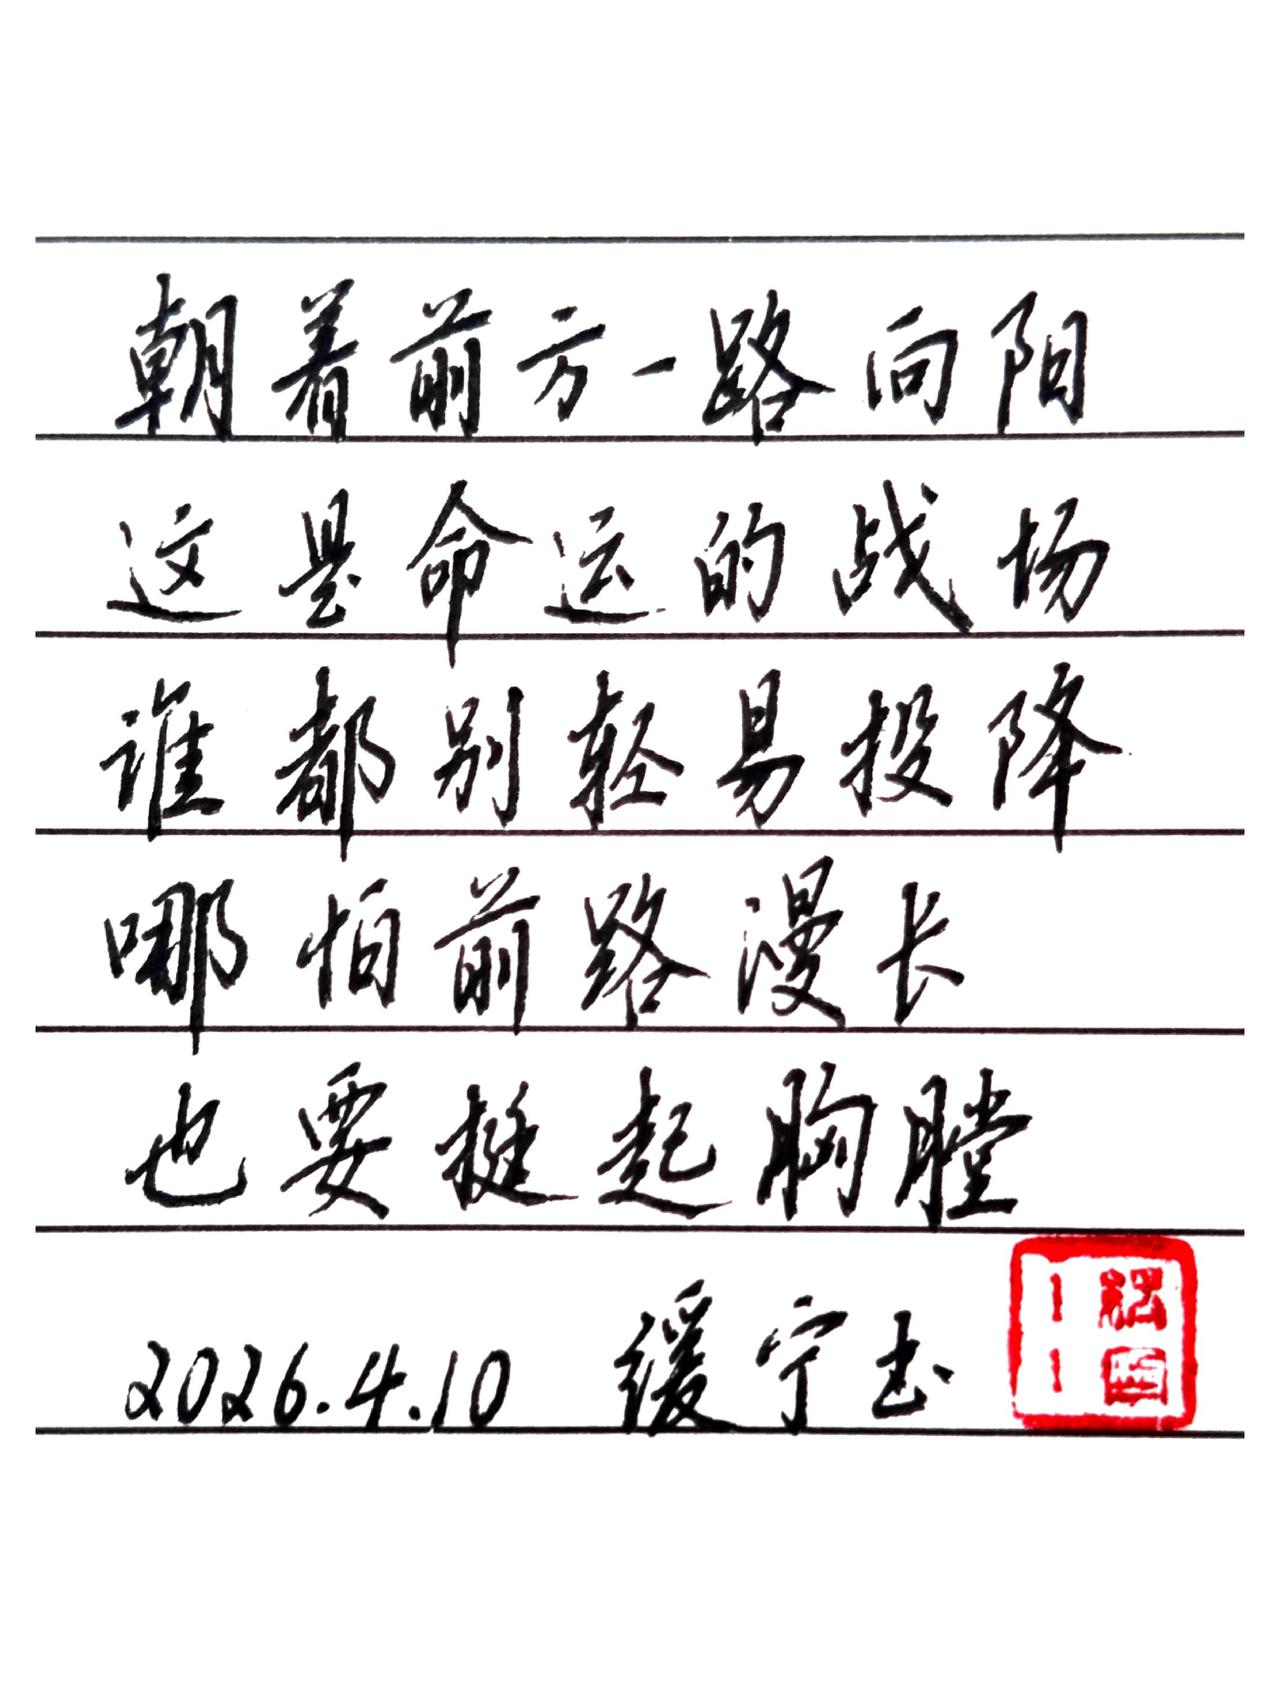 朝着前方一路向阳
这是命运的战场
谁都别轻易投降
哪怕前路漫长
也要挺起胸膛
2026.4.10 缓宁书